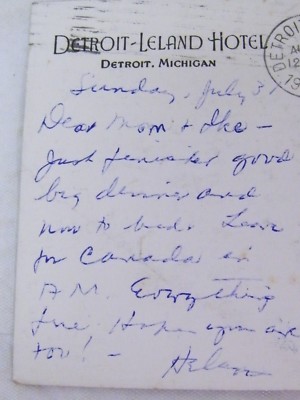 DETROIT-LELAND HOTEL
DETROIT. MICHIGAN
DETROIT
12
19
Sunday, July 31
Dear Mom & Ike -
Just finished good
big dinner and
now to bed. Leave
for Canada in
A.M. Everything
fine. Hope you are
too! -
Helen